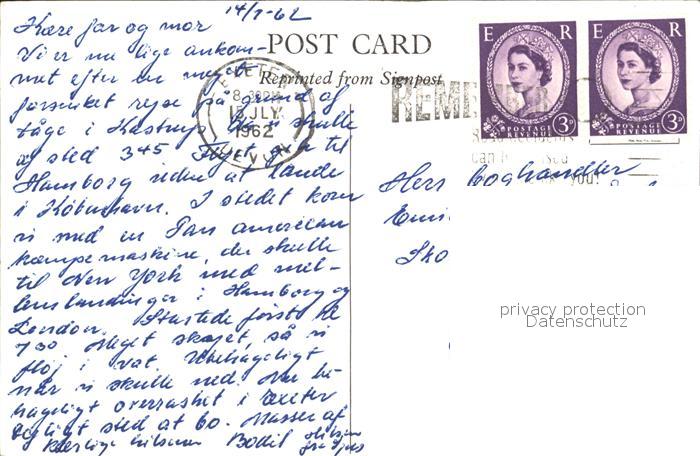 14/7-62
Kære far og mor
Vi er nu lige ankom-
met efter en meget
forsinket rejse på grund af
tåge i Kastrup. Vi skulle
og sted 345. Flyet gik til
Hamborg uden at lande
i København. I stedet kom
vi med en Pan american
kæmpemaskine, der skulle
til New York med mel-
lemlandinger i Hamborg og
London. Startede først kl
730. Meget skøjet, så vi
fløj i vat. Ubehageligt
når vi skulle ned. Nu be-
hageligt overrasket i Exeter
dejligt sted at bo. Masser af
Kærlige hilsner Bodil
POST CARD
Reprinted from Signpost
EXETER
8.30PM
15 JLY
1962
DEVON
REMEMBER
ROAD ACCIDENTS
can be caused
you!
E R
POSTAGE
REVENUE
3D
E R
POSTAGE
REVENUE
3D
Herr Boghandler
privacy protection
Datenschutz